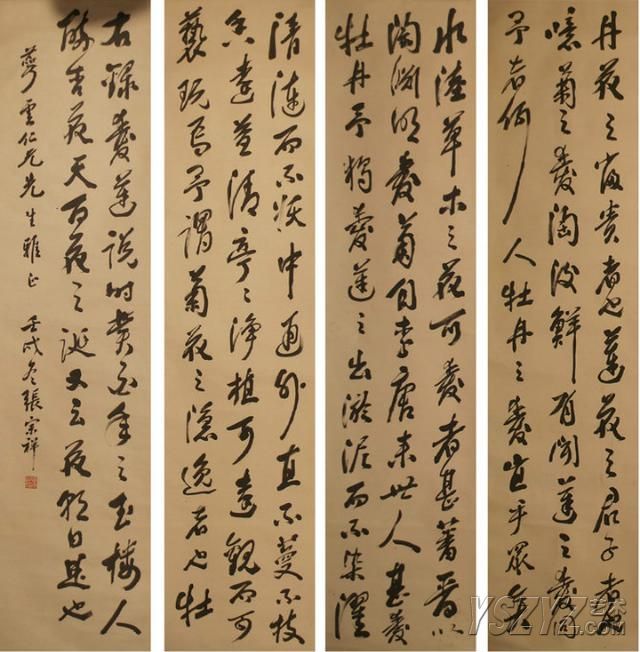 水陸草木之花可愛者甚蕃晉以
陶淵明愛菊自李唐來世人甚愛
牡丹予獨愛蓮之出淤泥而不染濯
清漣而不妖中通外直不蔓不枝
香遠益清亭亭淨植可遠觀而可
褻玩焉予謂菊花之隱逸者也牡
丹花之富貴者也蓮花之君子者也
噫菊之愛陶後鮮有聞蓮之愛同
予者何人牡丹之愛宜乎眾矣
右錄愛蓮說時之玉樓人
醉杏花天百花之誕又云花朝日是也
雲仁兄先生雅正 壬戌冬張宗祥